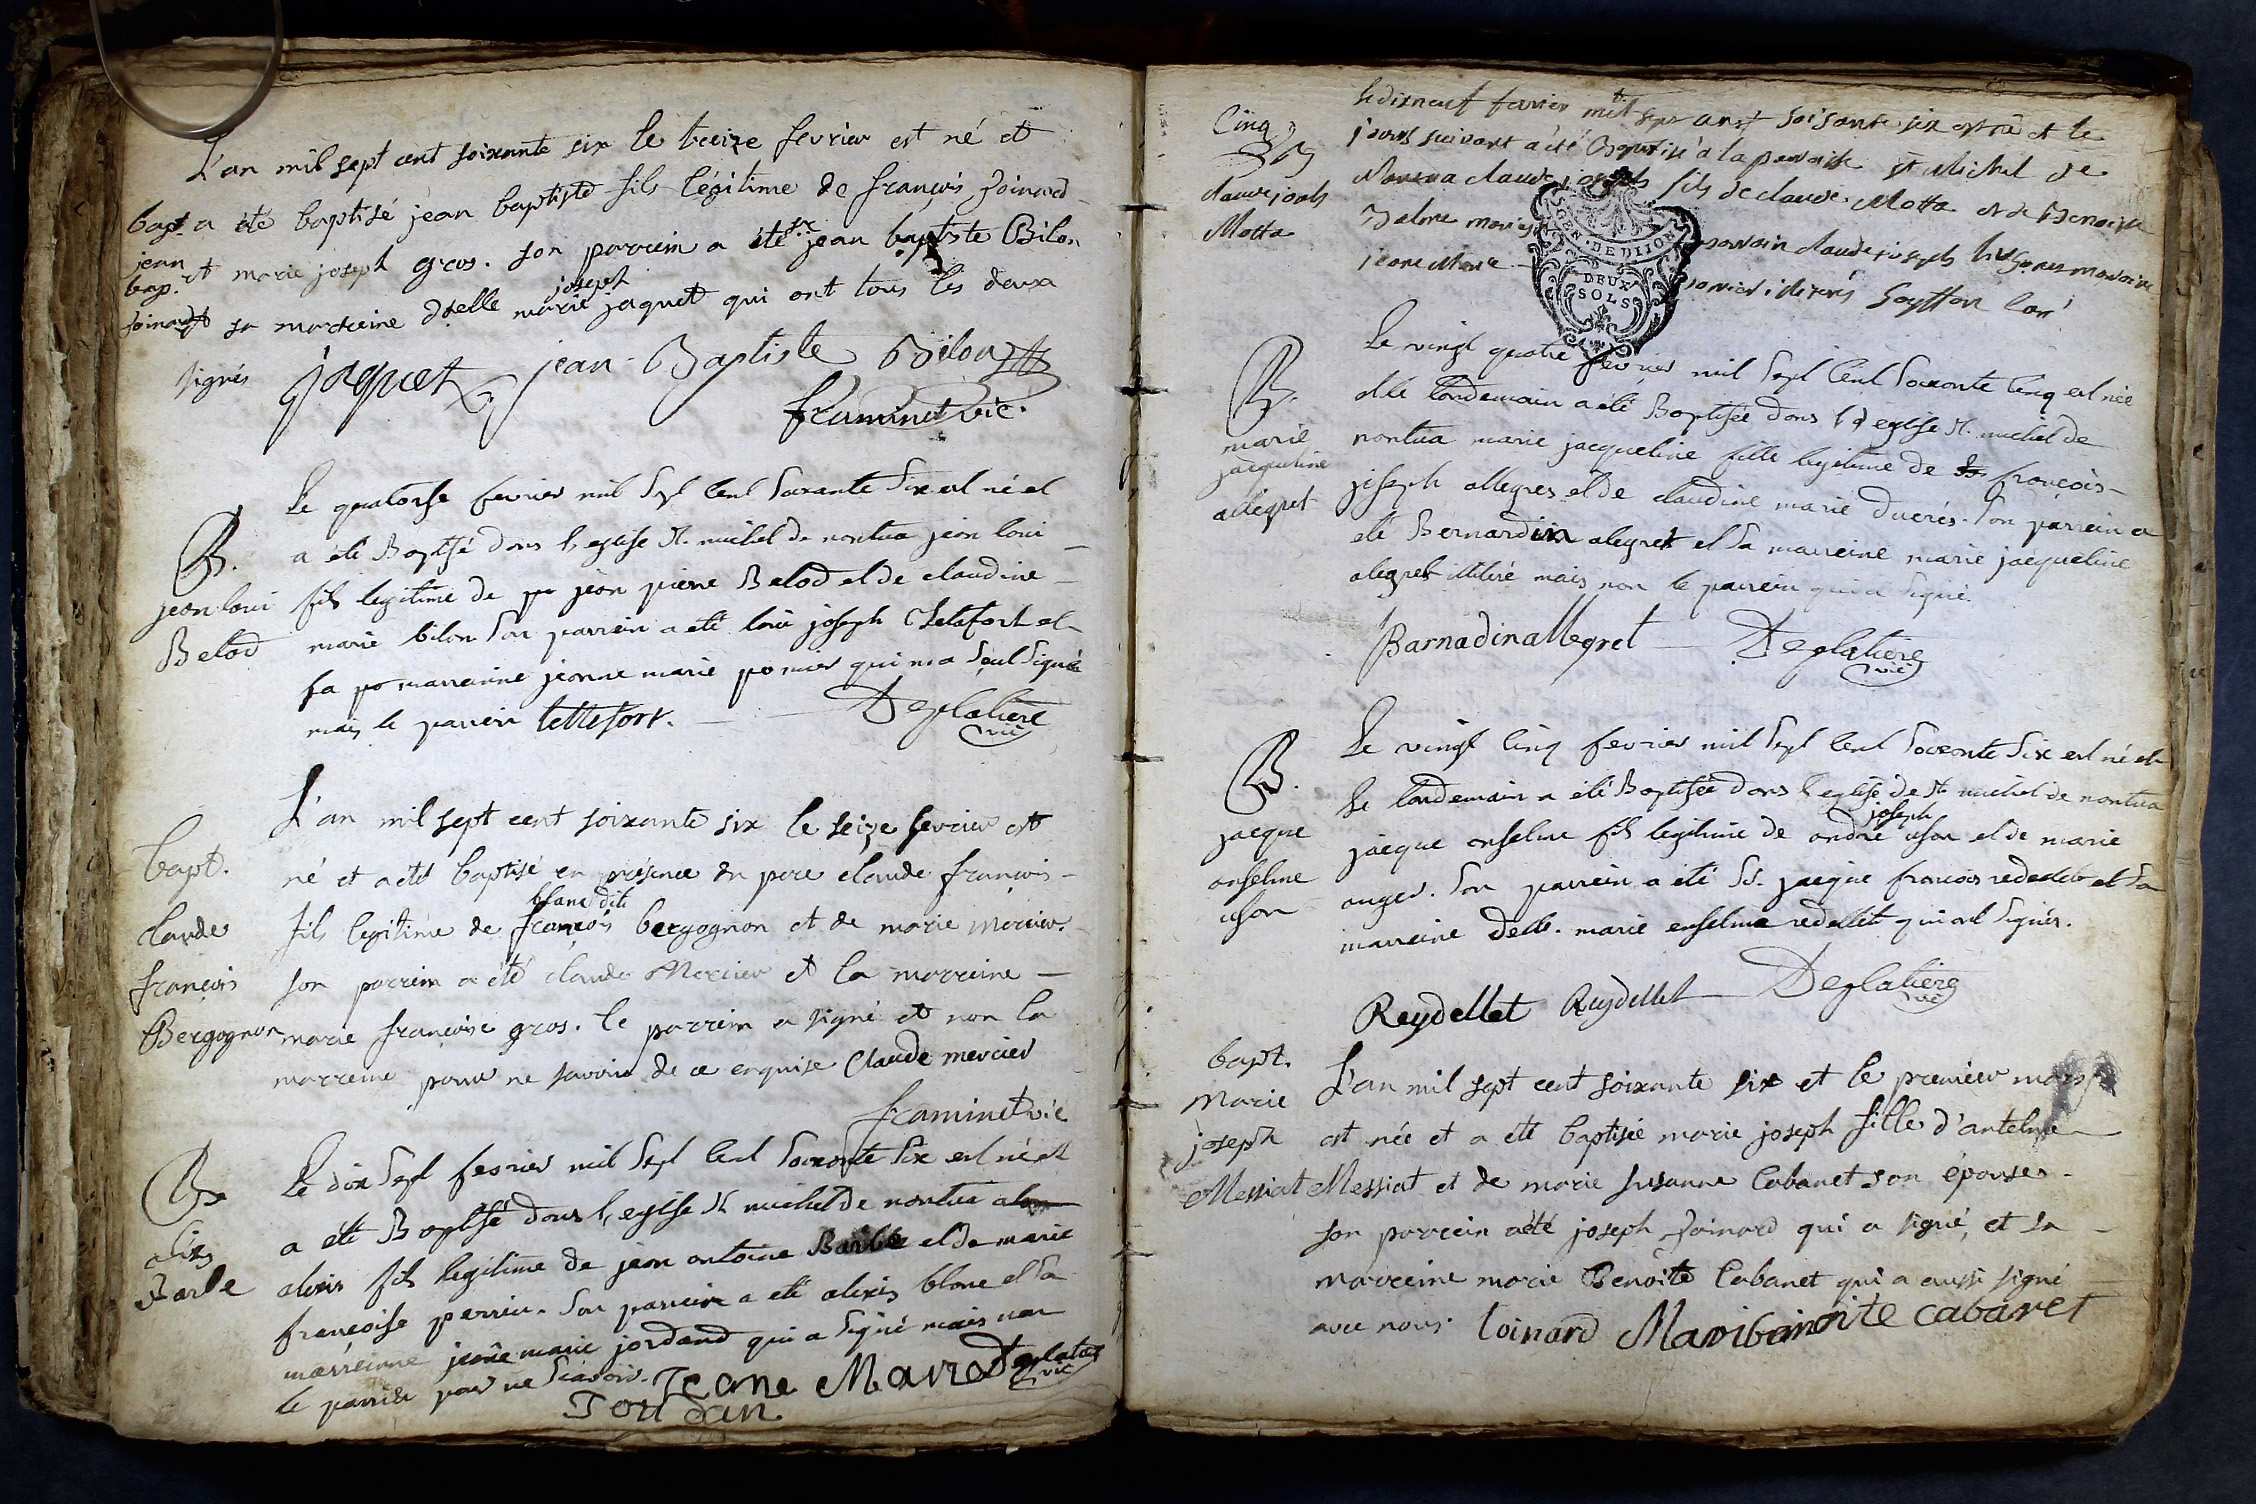 L'an mil sept cent soixante six le treize fevrier est né et
bapt. a été baptisé jean baptiste fils légitime de françois Joinard
jean bap. et marie joseph gros. son parrein a été sr. jean baptiste Bilon
Joinard sa marreine dselle marie joseph jaquet qui ont tous les deux
signés jaquet jean Baptiste Bilon
framinet vic.
Le quatorse fevrier mil sept cent soixante six est né et
B. a été Baptisé dans l'eglise st. michel de nantua jean loui
jean loui fils legitime de jean pierre Belod et de claudine
Belod marie bilon son parrein a été loui joseph Telefort et
sa marreinne jeanne marie pomier qui n'a seul signée
mais le parrein tellefort. Deglatiere
vic
L'an mil sept cent soixante six le seize fevrier est
bapt. né et a été baptisé en présence du pere claude françois
claude fils legitime de françois blanc dit bergognon et de marie mercier.
françois son parrein a été claude Mercier et la marreine
Bergognon marie françoise gros. le parrein a signé et non la
marreine pour ne savoir de ce enquise Claude mercier
framinet vic
Le dix sept fevrier mil sept cent soixante six est né et
B. a été Baptisé dans l'eglise st michel de nantua
alixis alexis fils legitime de jean antoine Barbe et de marie
Barbe françoise perrin. son parrein a été alexis blanc et sa
marreinne jeane marie jordand qui a signé mais non
le parrein pour ne sçavoir. Jeane Marie Deglatiere
Jourdan vic
Cinq ledixneuf fevrier mil sept cent soisante six est né et le
jours suivant a été Baptisé a la paroisse st Michel de
claude joseph Nantua claude joseph fils de claude Motta et de Benoite
Motta Jalone mariés parrain claude joseph hugones marraine
jeane Marie illiterés Goyffon Curé
SGEN. DE DIJON
DEUX
SOLS
Le vingt quatre fevrier mil sept cent soixante cinq est née
B. et le landemain a été Baptisée dans l'eglise st. michel de
marie nantua marie jacqueline fille legitime de françois
jacqueline joseph allegres et de claudine marie ducrés. son parrein a
allegret été Bernardin alegret et sa marreine marie jacqueline
alegret illitéré mais non le parrein qui a signé.
Barnadin allegret Deglatiere
vic
Le vingt cinq fevrier mil sept cent soixante six est né et
B. le landemain a été Baptisée dans l'eglise de st michel de nantua
jacque jacque anselme fils legitime de andre joseph uson et de marie
anselme auger. son parrein a été Sr. jacque françois redellet et sa
uson marreine delle. marie enselme redellet qui ont signés.
Reydellet Reydellet Deglatiere
vic
bapt. L'an mil sept cent soixante six et le premier mars
Marie est née et a été baptisée marie joseph fille d'antelme
joseph Messiat et de marie susanne Cabanet son épouse
Messiat son parrein a été joseph Joinard qui a signé, et sa
marreine marie Benoite Cabanet qui a aussi signé
avec nous. Toinard Maribenoite cabanet